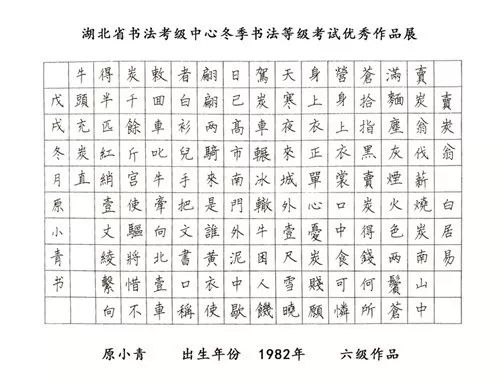 湖北省书法考级中心冬季书法等级考试优秀作品展
賣炭翁白居易
賣炭翁伐薪燒炭南山中
滿麵塵灰煙火色兩鬢蒼
蒼拾指黑賣炭得錢何所
營身上衣裳口中食可憐
身上衣正單心憂炭賤願
天寒夜來城外壹尺雪曉
駕炭車輾冰轍牛困人饑
日己高市南門外泥中歇
翩翩兩騎來是誰黃衣使
者白衫兒手把文書口稱
敕回車叱牛牽向北壹車
炭千餘斤宮使驅將惜不
得半匹紅綃壹丈綾繫向
牛頭充炭直
戊戌冬月原小青书
原小青 出生年份 1982年 六级作品